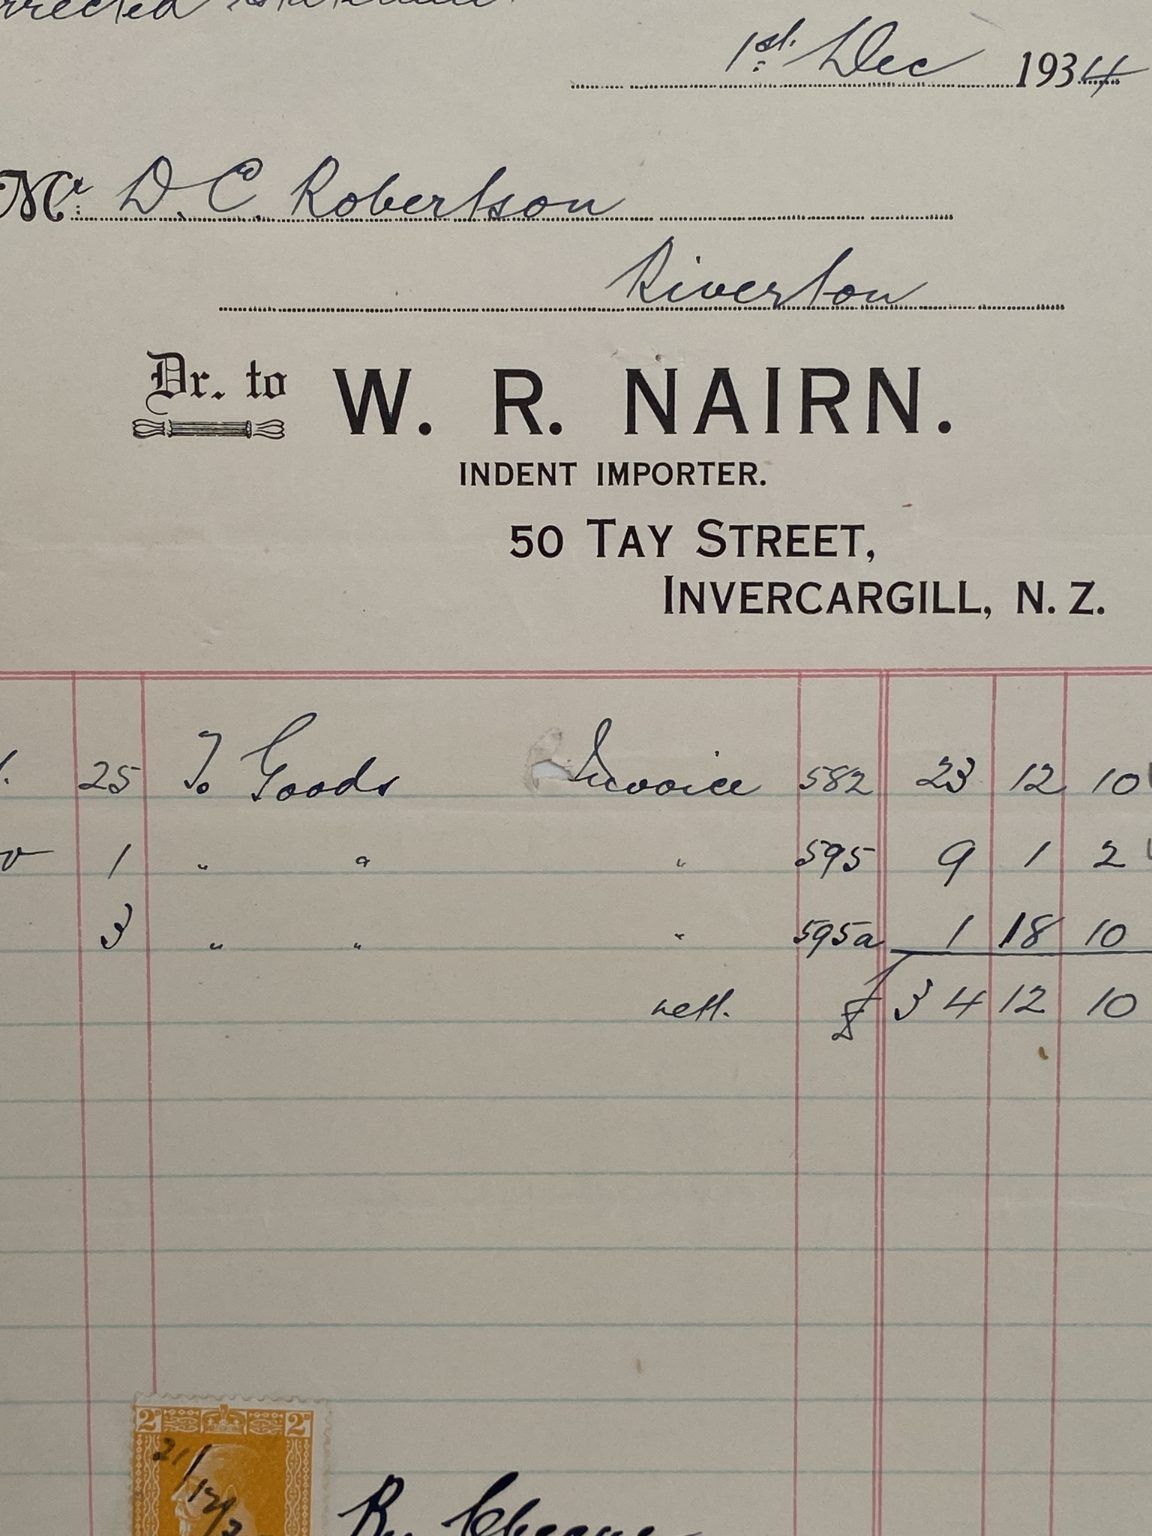 rrected statement
1st. Dec 1934
Mr. D. C. Robertson
Riverton
Dr. to W. R. NAIRN.
INDENT IMPORTER.
50 TAY STREET,
INVERCARGILL, N. Z.
25 To Goods Invoice 582 23 12 10
v 1 " " " 595 9 1 2
3 " " " 595a 1 18 10
nett. £ 34 12 10
2D 2D
21/12/3
By Cheque